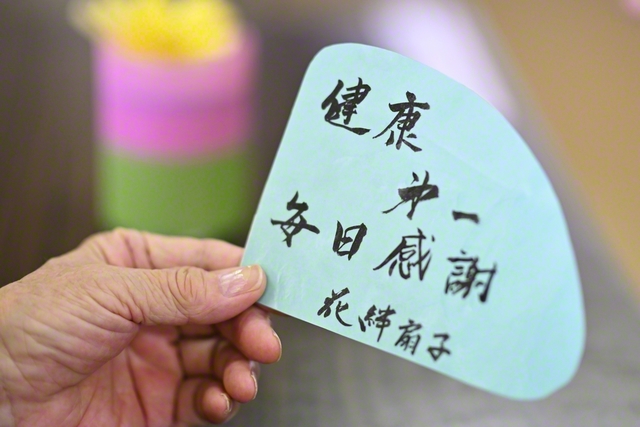 健康
第一
毎日感謝
花絆扇子